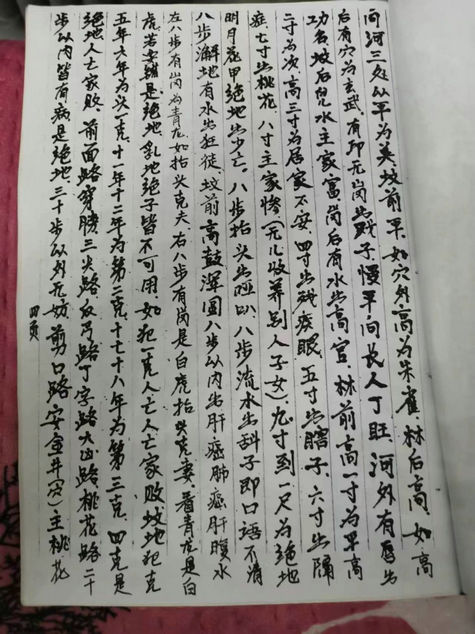 向河三处以平为美坟前平如穴外高为朱雀林后高如高
后有穴为玄武有印无岗出戏子慢平向长人丁旺河外有
功名坡后见水主家富岗后有水出高官林前高一寸为平高
二寸为次高三寸为居家不安四寸出残疾眼五寸出瞎子六寸出阵
症七寸出桃花八寸主家惨(无儿收养别人子女)九寸到一尺为绝地
明月花甲绝地出少亡八步抬头出哑叭八步流水出料子即口语不清
八步澥地有水出狂徒坟前高鼓浑圆八步以内出肝症肺症肝腹水
左八步有岗为青龙如抬头克夫右八步有岗是白虎抬头克妻看青龙是白
虎若安辘是绝地乳地绝子皆不可用如犯一克人亡人亡家败坟地犯克
五年六年为头一克十一年十二年为第二克十七十八年为第三克四克是
绝地人亡家败前面路穿膀三尖路反弓路丁字路大凶路桃花路二十
步以内皆有病是绝地三十步以外无妨剪口路安室井(灾)主桃花
四页